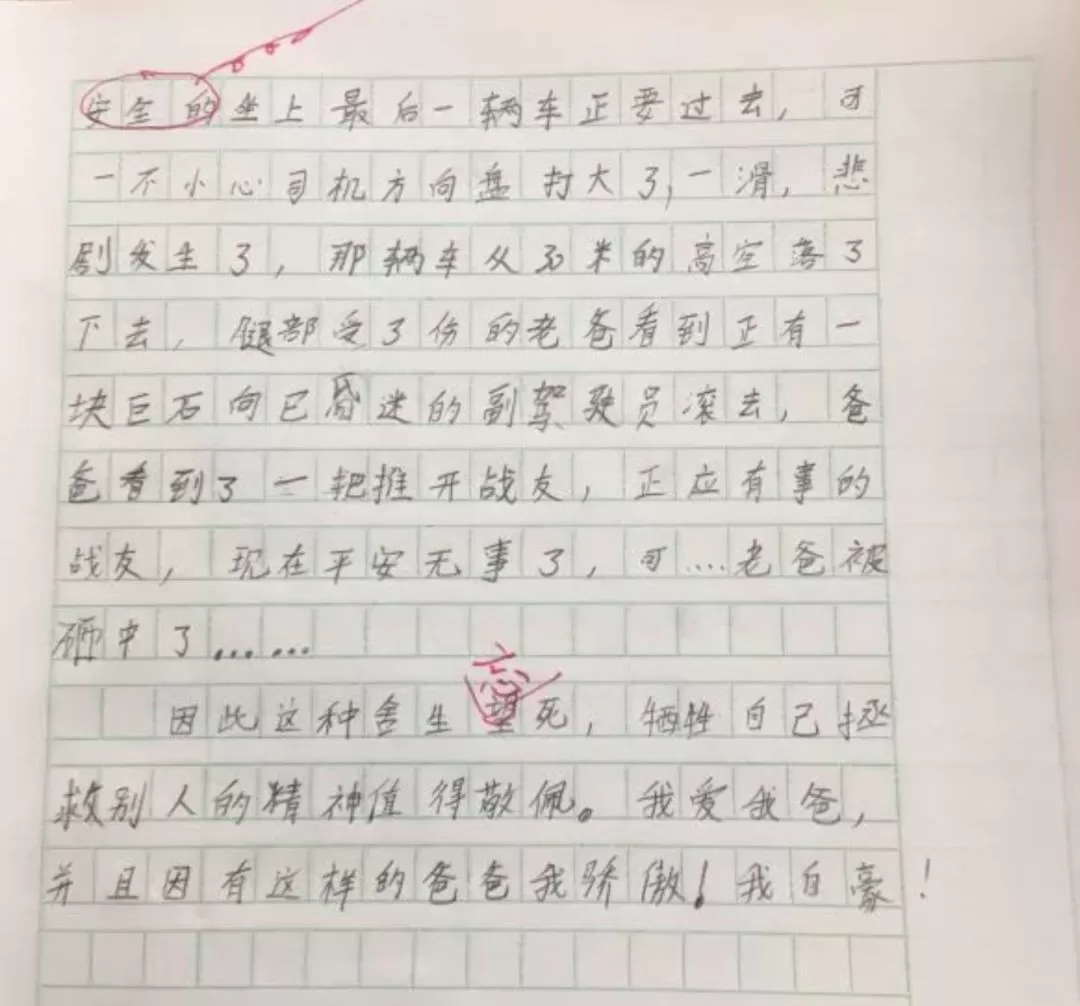 安全的坐上最后一辆车正要过去，可
一不小心司机方向盘打大了，一滑，悲
剧发生了，那辆车从30米的高空落了
下去，腿部受了份的老爸看到正有一
块巨石向已昏迷的副驾驶员滚去，爸
爸看到了一把推开战友，正应有事的
战友，现在平安无事了，可....老爸被
砸中了......
忘
因此这种舍生望死，牺牲自己拯
救别人的精神值得敬佩。我爱我爸，
并且因有这样的爸爸我骄傲！我自豪！